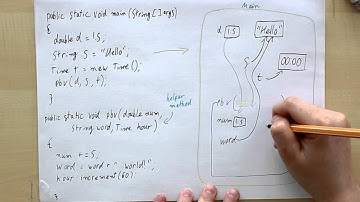 public static void main (String [] args)
{
double d = 1.5,
String s = "Hello";
Time t = new Time();
pbv (d, s, t);
}
public static void pbv (double num,
String word, Time hour)
{
num += 5,
word = word + " world!";
hour.increment(60);
}
helper
method
Main
d
1.5
"Hello"
s
t
00:00
pbv (
num
1.5
word